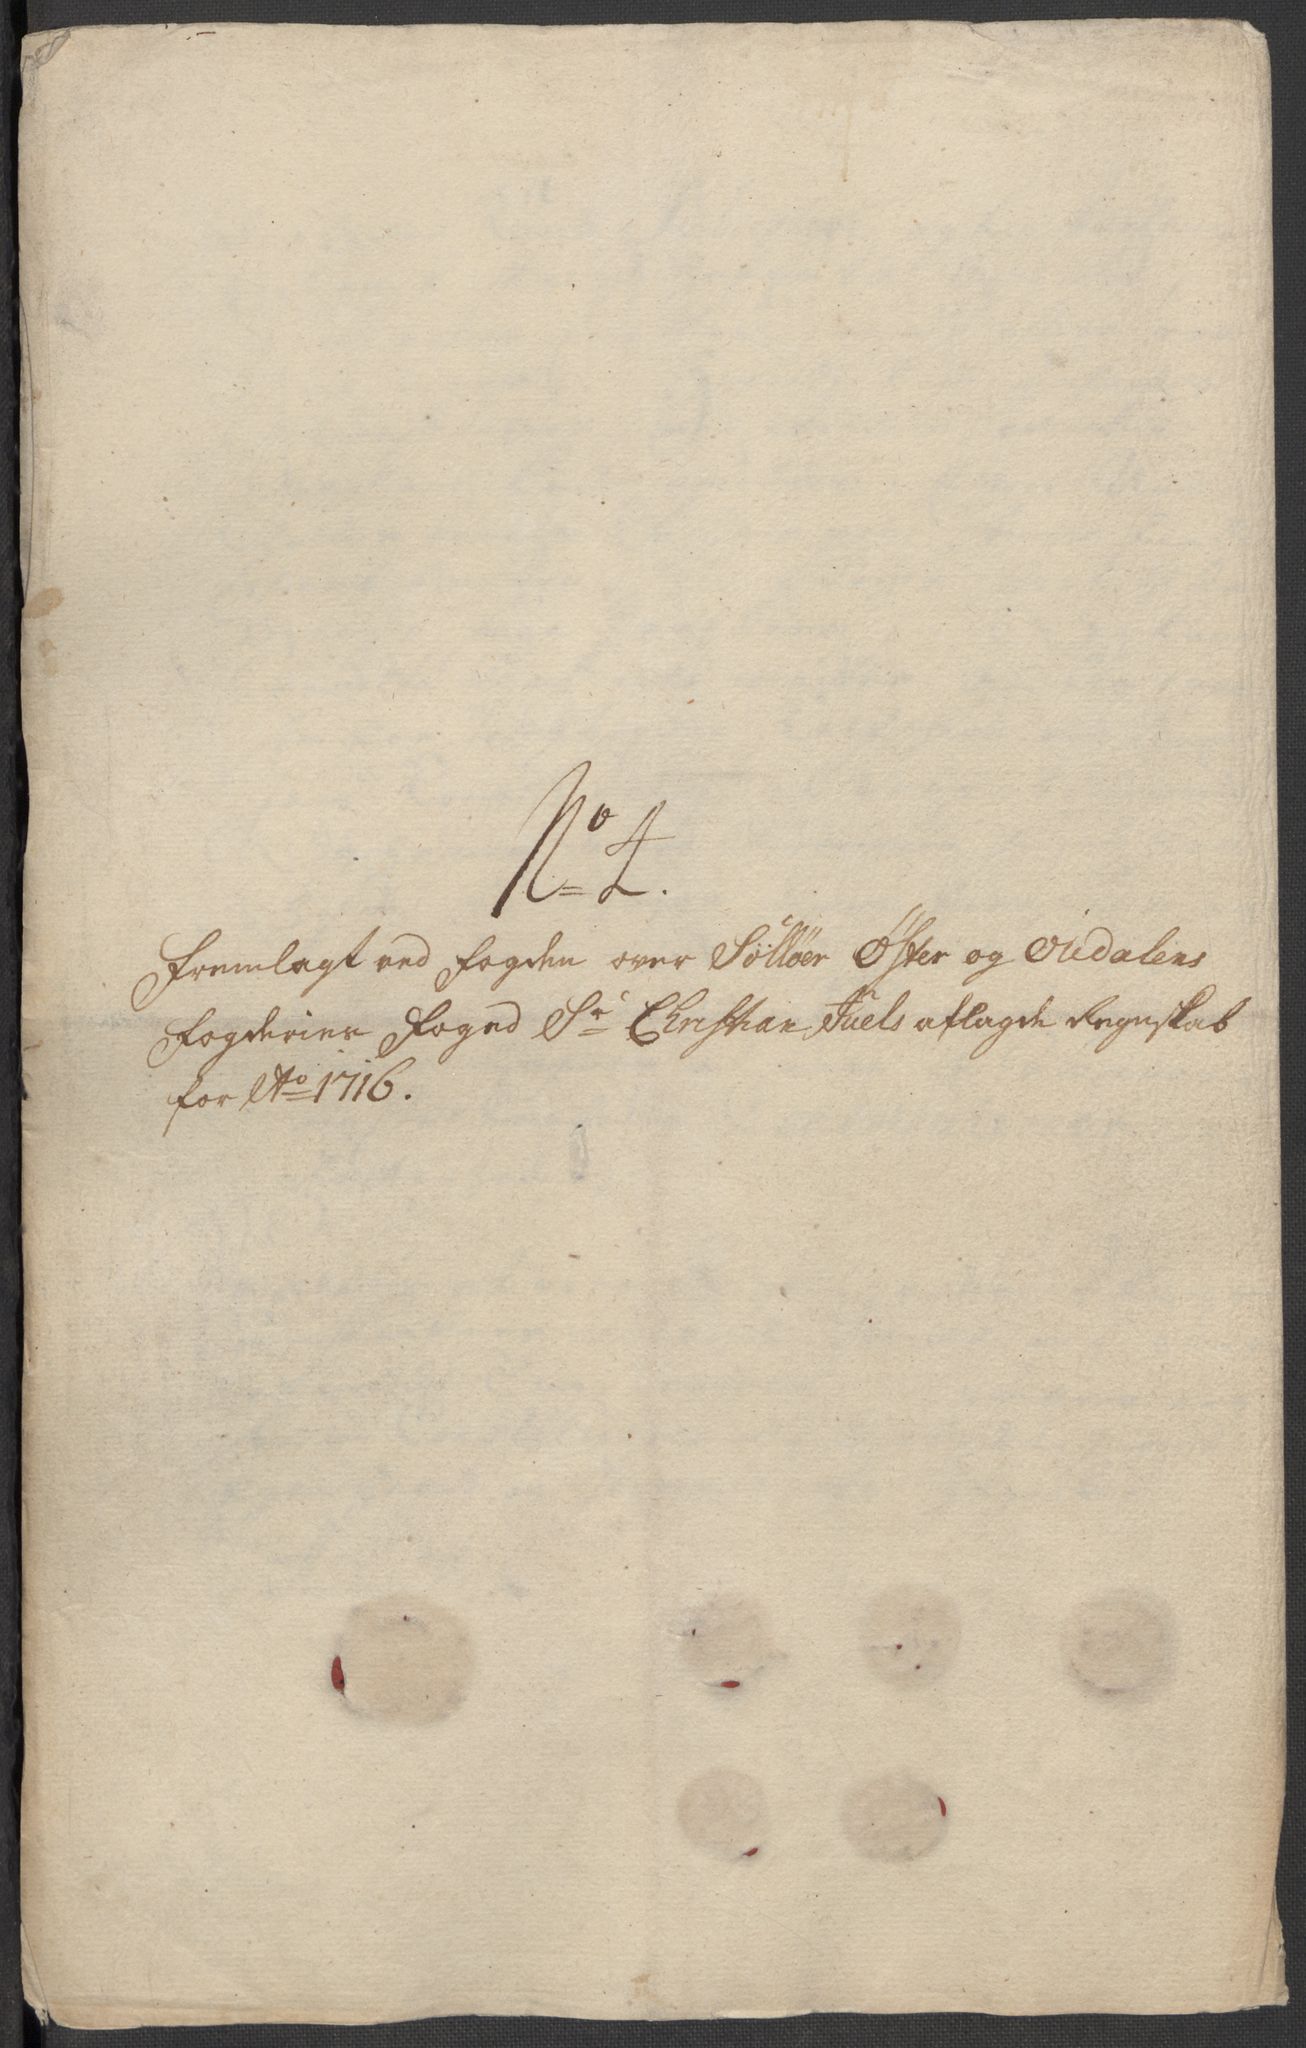 No 4.
Fremlagt ved fogden over Sölöer Öster og Oudalens
fogderier Foged Sr Christian Juels aflagde Regnskab
for Ao 1716.